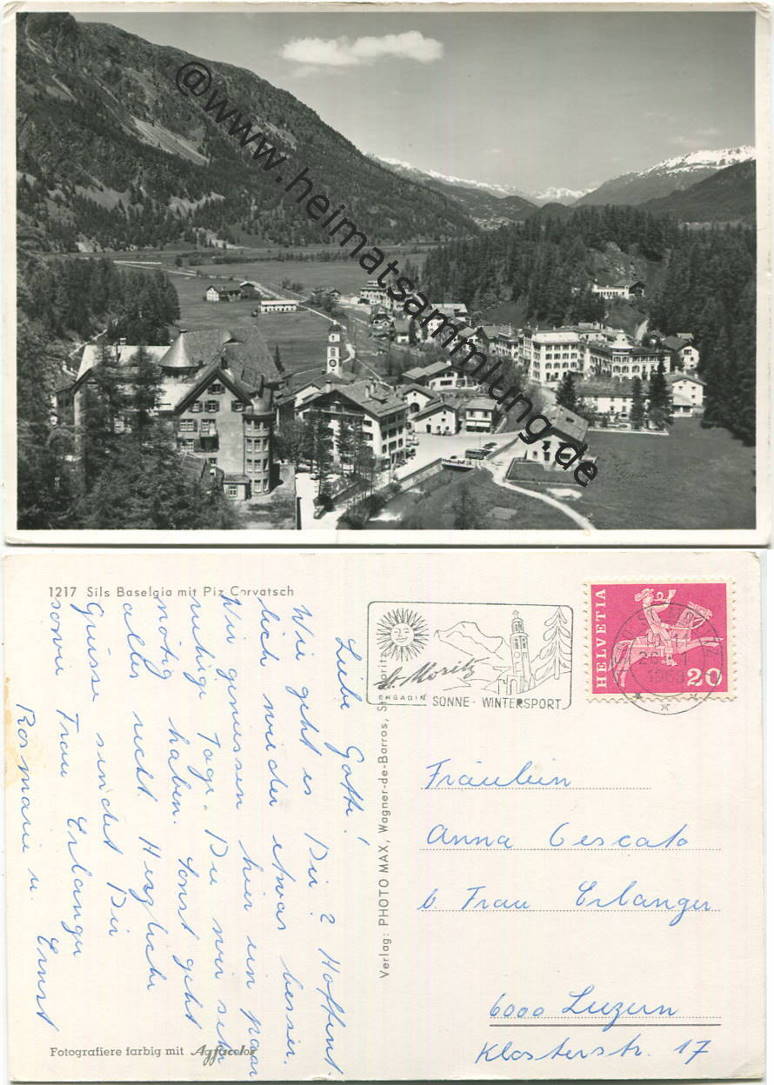 @www.heimatsammlung.de
1217 Sils Baselgia mit Piz Corvatsch
Liebe Gotte!
Wie geht es Dir? Hoffent-
lich wieder etwas besser.
Wir geniessen hier ein paar
ruhige Tage. Die wir sehr
nötig haben. Sonst geht
alles recht. Herzliche
Grüsse sendet Dir
sowie Frau Erlanger
Rosmarie u. Ernst
Fotografiere farbig mit Agfacolor
Verlag: PHOTO MAX, Wagner-de-Barros, St. Moritz
St. Moritz
ENGADIN SONNE - WINTERSPORT
1969
HELVETIA
20
Fräulein
Anna Cescato
b. Frau Erlanger
6000 Luzern
Klosterstr. 17